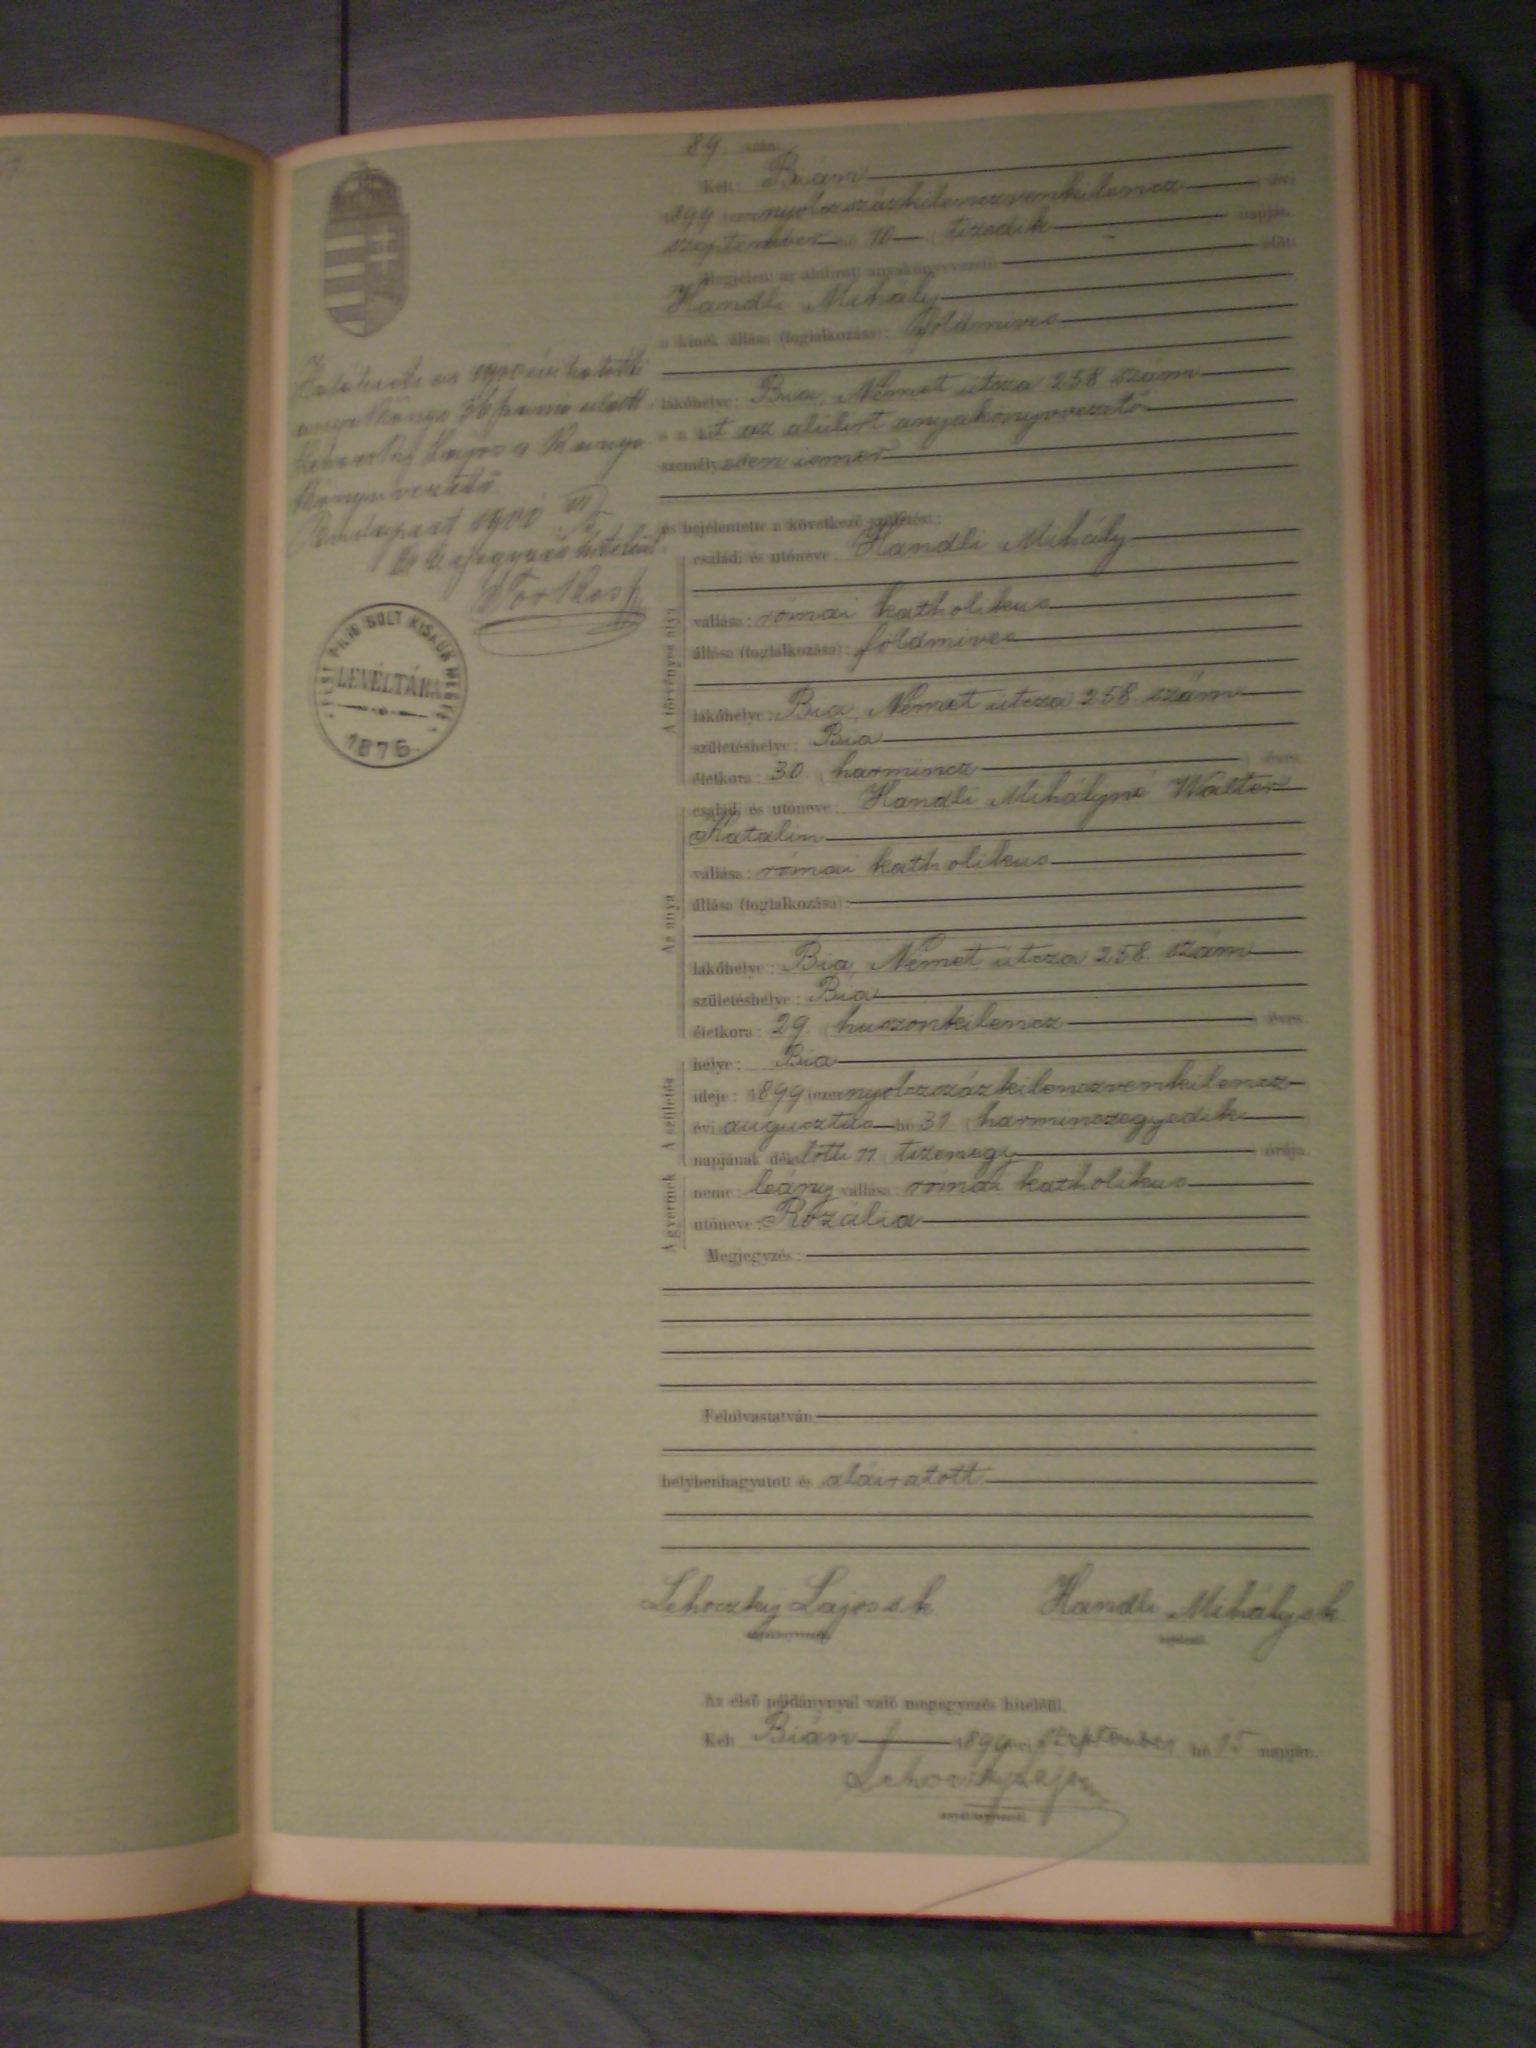 89 szám
Kelt: Bián
1899 ezernyolczszázkilenczvenkilencz évi
szeptember hó 10 tizedik napján
Megjelent az alulirott anyakönyvvezető előtt
Handli Mihály
a kinek állása (foglalkozása): földmives
lakóhelye: Bia, Német útcza 258 szám
s a kit az alulirt anyakönyvvezető
személyesen ismer
és bejelentette a következő születést:
A törvényes atya
családi és utóneve: Handli Mihály
vallása: római katholikus
állása (foglalkozása): földmives
lakóhelye: Bia, Német útcza 258. szám
születéshelye: Bia
életkora: 30 harmincz éves
Az anya
családi és utóneve: Handli Mihályné Walter
Katalin
vallása: római katholikus
állása (foglalkozása):
lakóhelye: Bia, Német útcza 258. szám
születéshelye: Bia
életkora: 29 huszonkilencz éves
A születés
helye: Bia
ideje: 1899 ezernyolczszázkilenczvenkilencz
évi augusztus hó 31 harminczegyedik
napjának délelőtti 11 tizenegy órája
A gyermek
neme: leány vallása: római katholikus
utóneve: Rozália
Megjegyzés:
Felolvastatván
helybenhagyatott és aláiratott
Lehoczky Lajos s k Handli Mihály sk
anyakönyvvezető bejelentő
Az első példánynyal való megegyezés hiteléül.
Kelt Bián 1899 évi szeptember hó 15 napján.
Lehoczky Lajos
anyakönyvvezető
anyakönyv
Lajos
Budapest 1900
PEST PILIS SOLT KISKUN MEGYE
LEVÉLTÁRA
1876